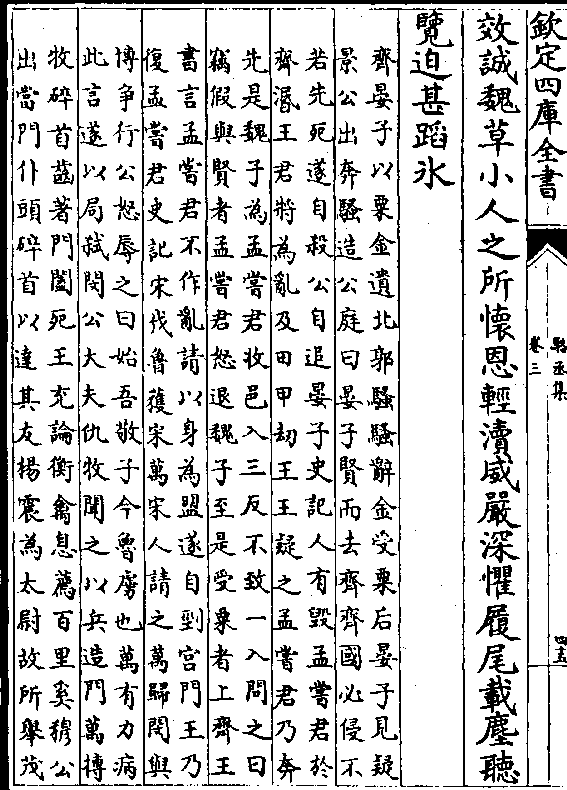 欽定四庫全書
駱丞集
卷三
效誠魏草小人之所懷恩輕瀆威嚴深懼履尾載塵聽
覽迫甚蹈氷
齊晏子以粟金遺北郭騷騷辭金受粟后晏子見疑
景公出奔騷造公庭曰晏子賢而去齊齊國必侵不
若先死遂自殺公自追晏子史記人有毁孟嘗君於
齊湣王君將為亂及田甲刼王王疑之孟嘗君乃奔
先是魏子為孟嘗君收邑入三反不致一入問之曰
竊假與賢者孟嘗君怒退魏子至是受粟者上齊王
書言孟嘗君不作亂請以身為盟遂自剄宮門王乃
復孟嘗君史記宋伐魯獲宋萬宋人請之萬歸閔與
博争行公怒辱之曰始吾敬子今魯虜也萬有力病
此言遂以局弑閔公大夫仇牧聞之以兵造門萬摶
牧碎首齒著門闔死王充論衡禽息薦百里奚穆公
出當門仆頭碎首以達其友楊震為太尉故所舉茂